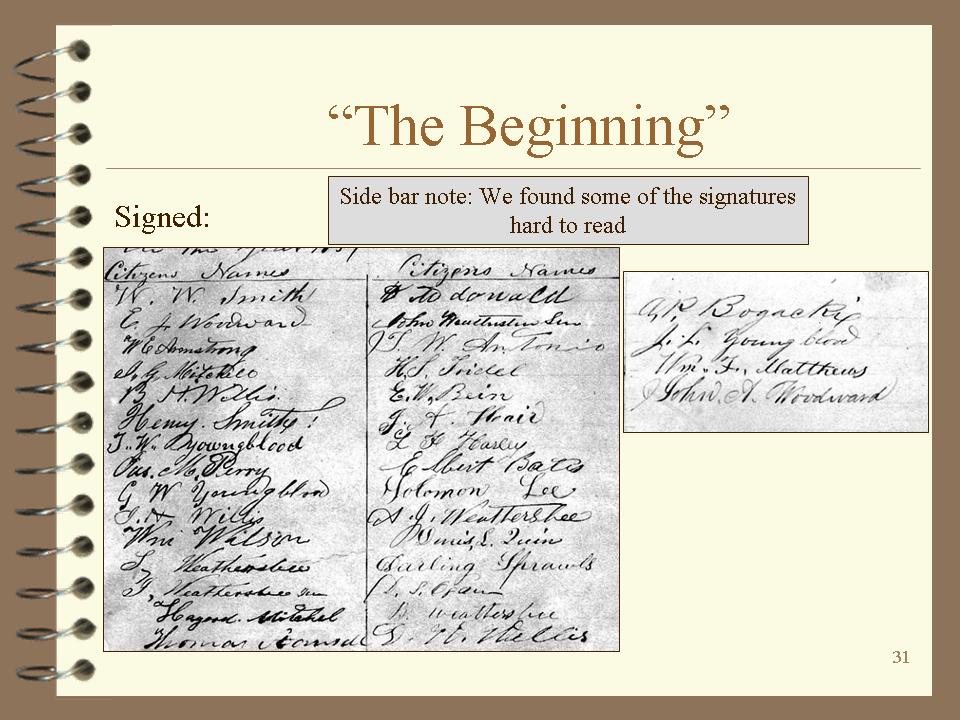 “The Beginning”
Signed:
Side bar note: We found some of the signatures
hard to read
Citizens Names
W. W. Smith
E. J. Woodward
W E Armstrong
J. G. Mitchell
B. H. Willis
Henry Smith
J. W. Youngblood
Jas. M. Perry
G W Youngblood
J. H Willis
Wm Watson
J. Weathersbee
Weathersbee
Mitchel
Thomas
Citizens Names
donald
John
W Antonio
H. S.
E. W. Bein
Hair
L H Harley
Elbert Bates
Solomon Lee
A. J. Weathersbee
L. Quin
Darling Sprawls
D. S.
B. Weathersbee
H.
Bogacki
J. L. Youngblood
Wm. F. Matthews
John. A. Woodward
31